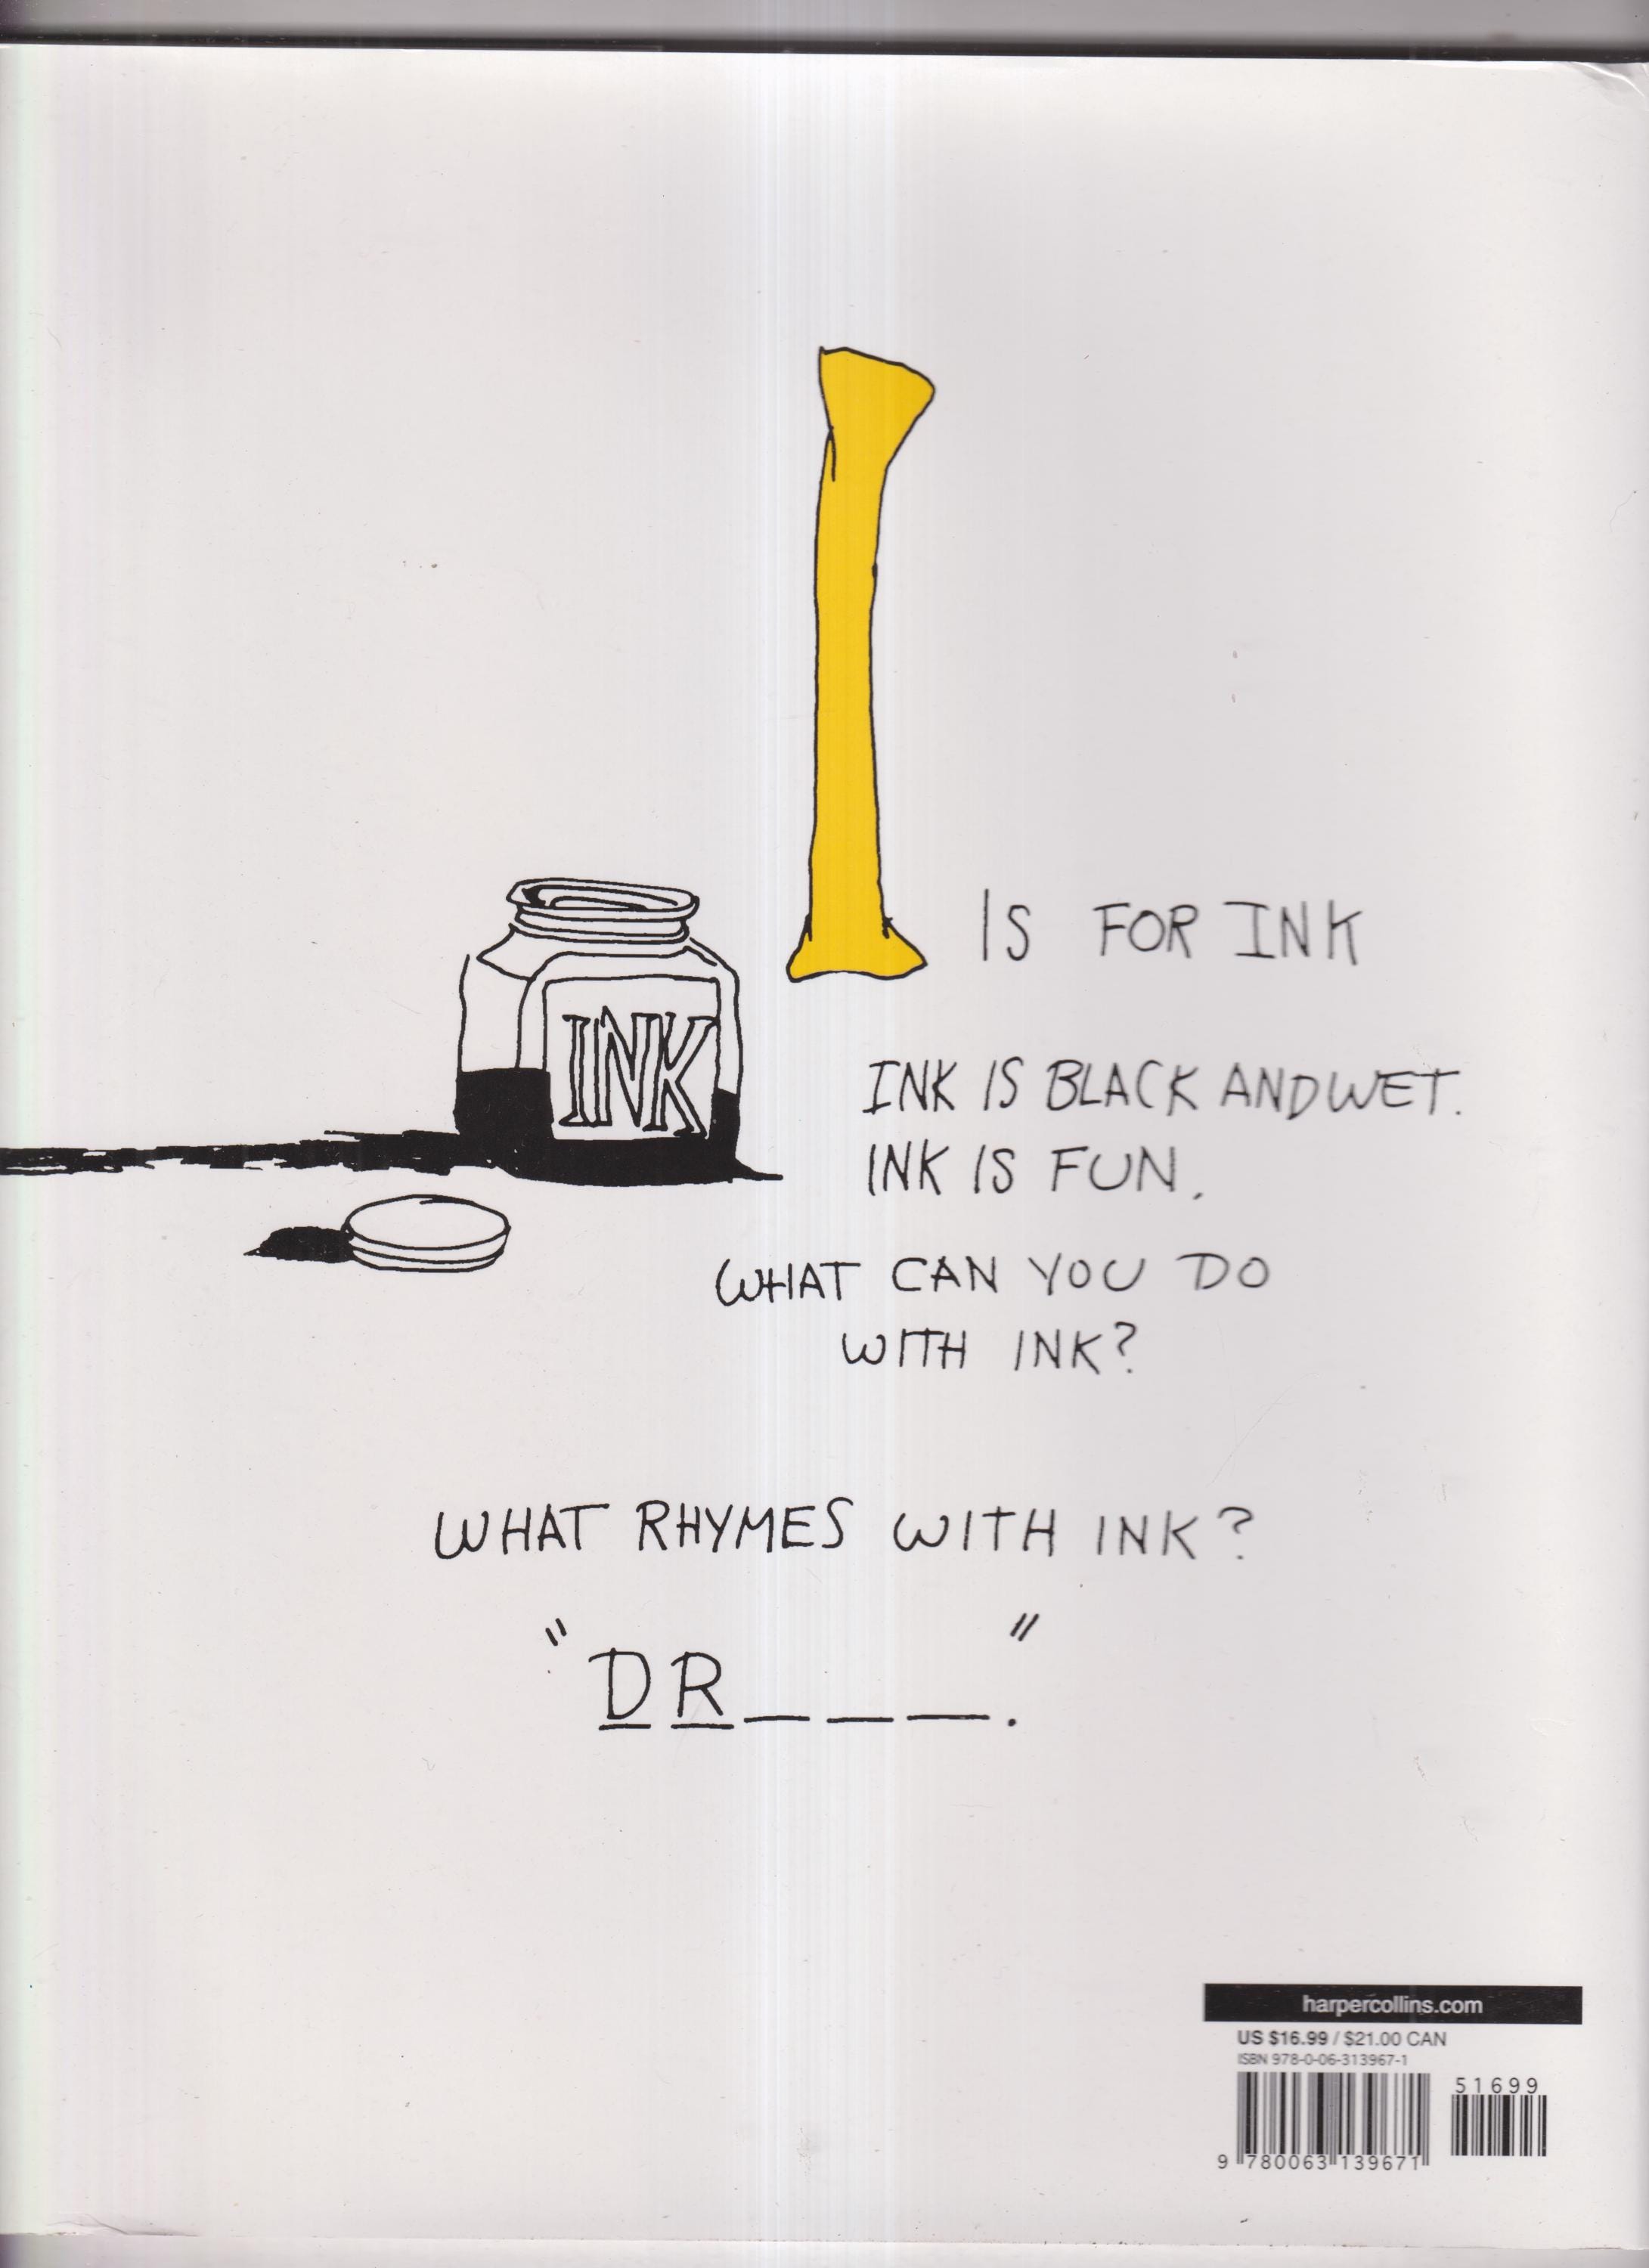 I IS FOR INK
INK
INK IS BLACK AND WET.
INK IS FUN.
WHAT CAN YOU DO
WITH INK?
WHAT RHYMES WITH INK?
"DR___."
harpercollins.com
US $16.99 / $21.00 CAN
ISBN 978-0-06-313967-1
51699
9 780063 139671